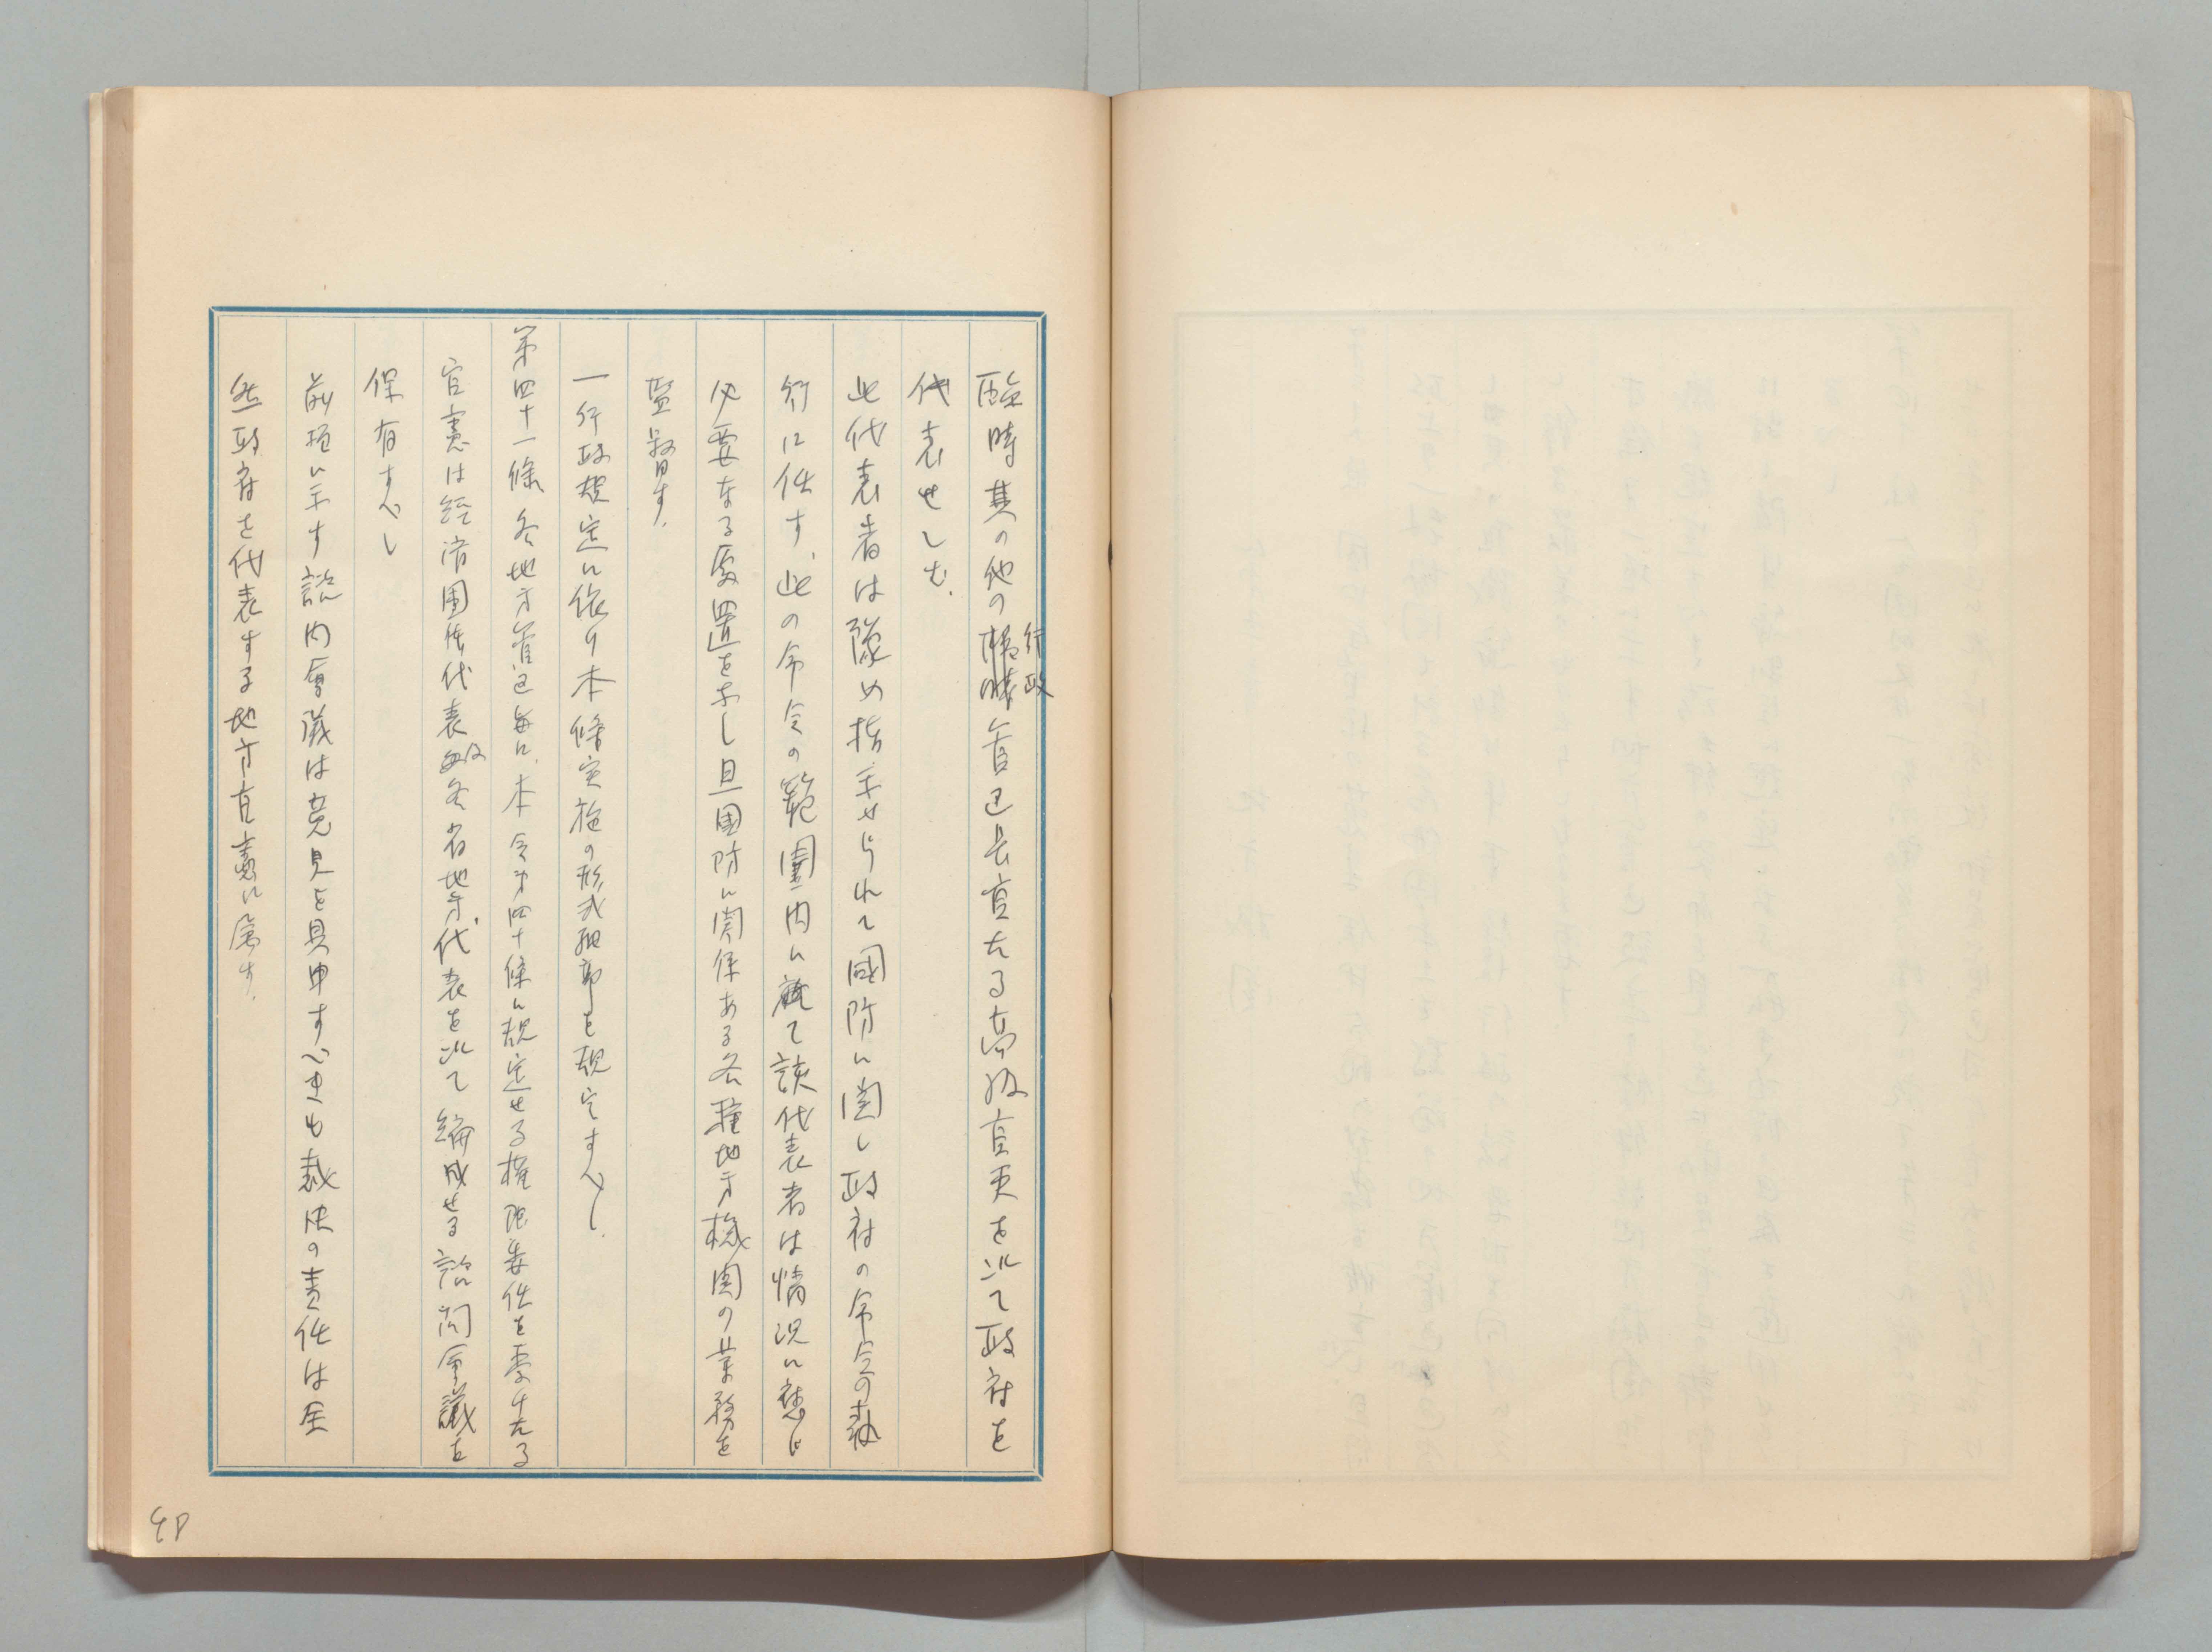 臨時其の他の行政管区長官たる高級官吏を以て政府を
代表せしむ.
此代表者は隊め指示せられて國防に関し政府の命令の執
行に任す、此の命令の範圍内に於て該代表者は情況に應じ
必要なる處置を為し且國防に関係ある各種地方機関の業務を
監督す.
一行政規定に依り本條実施の形式細部を規定すべし.
第四十一條 各地方管区毎に、本令第四十條に規定せる権限委任を享けたる
官憲は経済團体代表及各省地方代表を以て編成せる諮問会議を
保有すべし
前項に示す諮問会議は意見を具申すべきも裁決の責任は全
然政府を代表する地方官憲に属す.
48